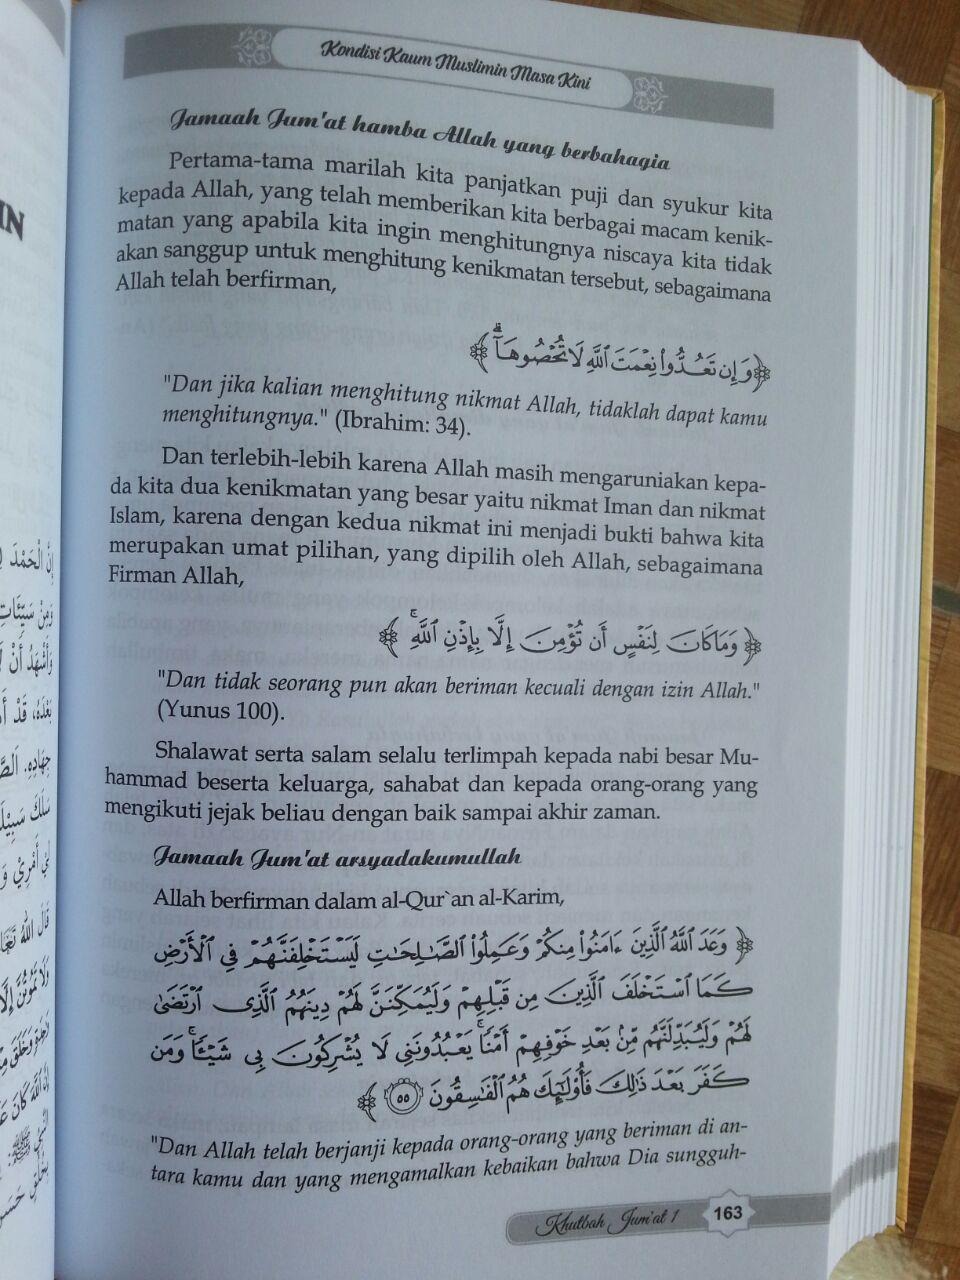 Kondisi Kaum Muslimin Masa Kini
Jamaah Jum'at hamba Allah yang berbahagia
Pertama-tama marilah kita panjatkan puji dan syukur kita
kepada Allah, yang telah memberikan kita berbagai macam kenik-
matan yang apabila kita ingin menghitungnya niscaya kita tidak
akan sanggup untuk menghitung kenikmatan tersebut, sebagaimana
Allah telah berfirman,
﴿وَإِن تَعُدُّوا۟ نِعْمَتَ ٱللَّهِ لَا تُحْصُوهَآ ۗ﴾
"Dan jika kalian menghitung nikmat Allah, tidaklah dapat kamu
menghitungnya." (Ibrahim: 34).
Dan terlebih-lebih karena Allah masih mengaruniakan kepa-
da kita dua kenikmatan yang besar yaitu nikmat Iman dan nikmat
Islam, karena dengan kedua nikmat ini menjadi bukti bahwa kita
merupakan umat pilihan, yang dipilih oleh Allah, sebagaimana
Firman Allah,
﴿وَمَا كَانَ لِنَفْسٍ أَن تُؤْمِنَ إِلَّا بِإِذْنِ ٱللَّهِ ۚ﴾
"Dan tidak seorang pun akan beriman kecuali dengan izin Allah."
(Yunus 100).
Shalawat serta salam selalu terlimpah kepada nabi besar Mu-
hammad beserta keluarga, sahabat dan kepada orang-orang yang
mengikuti jejak beliau dengan baik sampai akhir zaman.
Jamaah Jum'at arsyadakumullah
Allah berfirman dalam al-Qur`an al-Karim,
﴿وَعَدَ ٱللَّهُ ٱلَّذِينَ ءَامَنُوا۟ مِنكُمْ وَعَمِلُوا۟ ٱلصَّـٰلِحَـٰتِ لَيَسْتَخْلِفَنَّهُمْ فِى ٱلْأَرْضِ
كَمَا ٱسْتَخْلَفَ ٱلَّذِينَ مِن قَبْلِهِمْ وَلَيُمَكِّنَنَّ لَهُمْ دِينَهُمُ ٱلَّذِى ٱرْتَضَىٰ
لَهُمْ وَلَيُبَدِّلَنَّهُم مِّنۢ بَعْدِ خَوْفِهِمْ أَمْنًا ۚ يَعْبُدُونَنِى لَا يُشْرِكُونَ بِى شَيْـًٔا ۚ وَمَن
كَفَرَ بَعْدَ ذَٰلِكَ فَأُو۟لَـٰٓئِكَ هُمُ ٱلْفَـٰسِقُونَ ٥٥﴾
"Dan Allah telah berjanji kepada orang-orang yang beriman di an-
tara kamu dan yang mengamalkan kebaikan bahwa Dia sungguh-
Khutbah Jum'at 1
163
IN
إِنَّ الْحَمْدَ
وَمِنْ سَيِّئَاتِ
وَأَشْهَدُ أَنْ
بَعْدَهُ، قَدْ
جِهَادِهِ.
سَلَكَ
لِي أَمْرِي
قَالَ اللهُ
وَلَا تَمُوتُنَّ إِلَّا